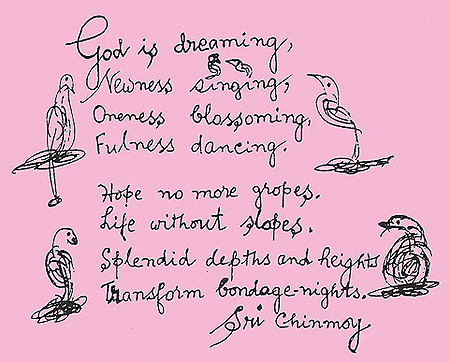 God is dreaming,
Newness singing,
Oneness blossoming,
Fulness dancing.
Hope no more gropes.
Life without slopes.
Splendid depths and heights
Transform bondage-nights.
Sri Chinmoy